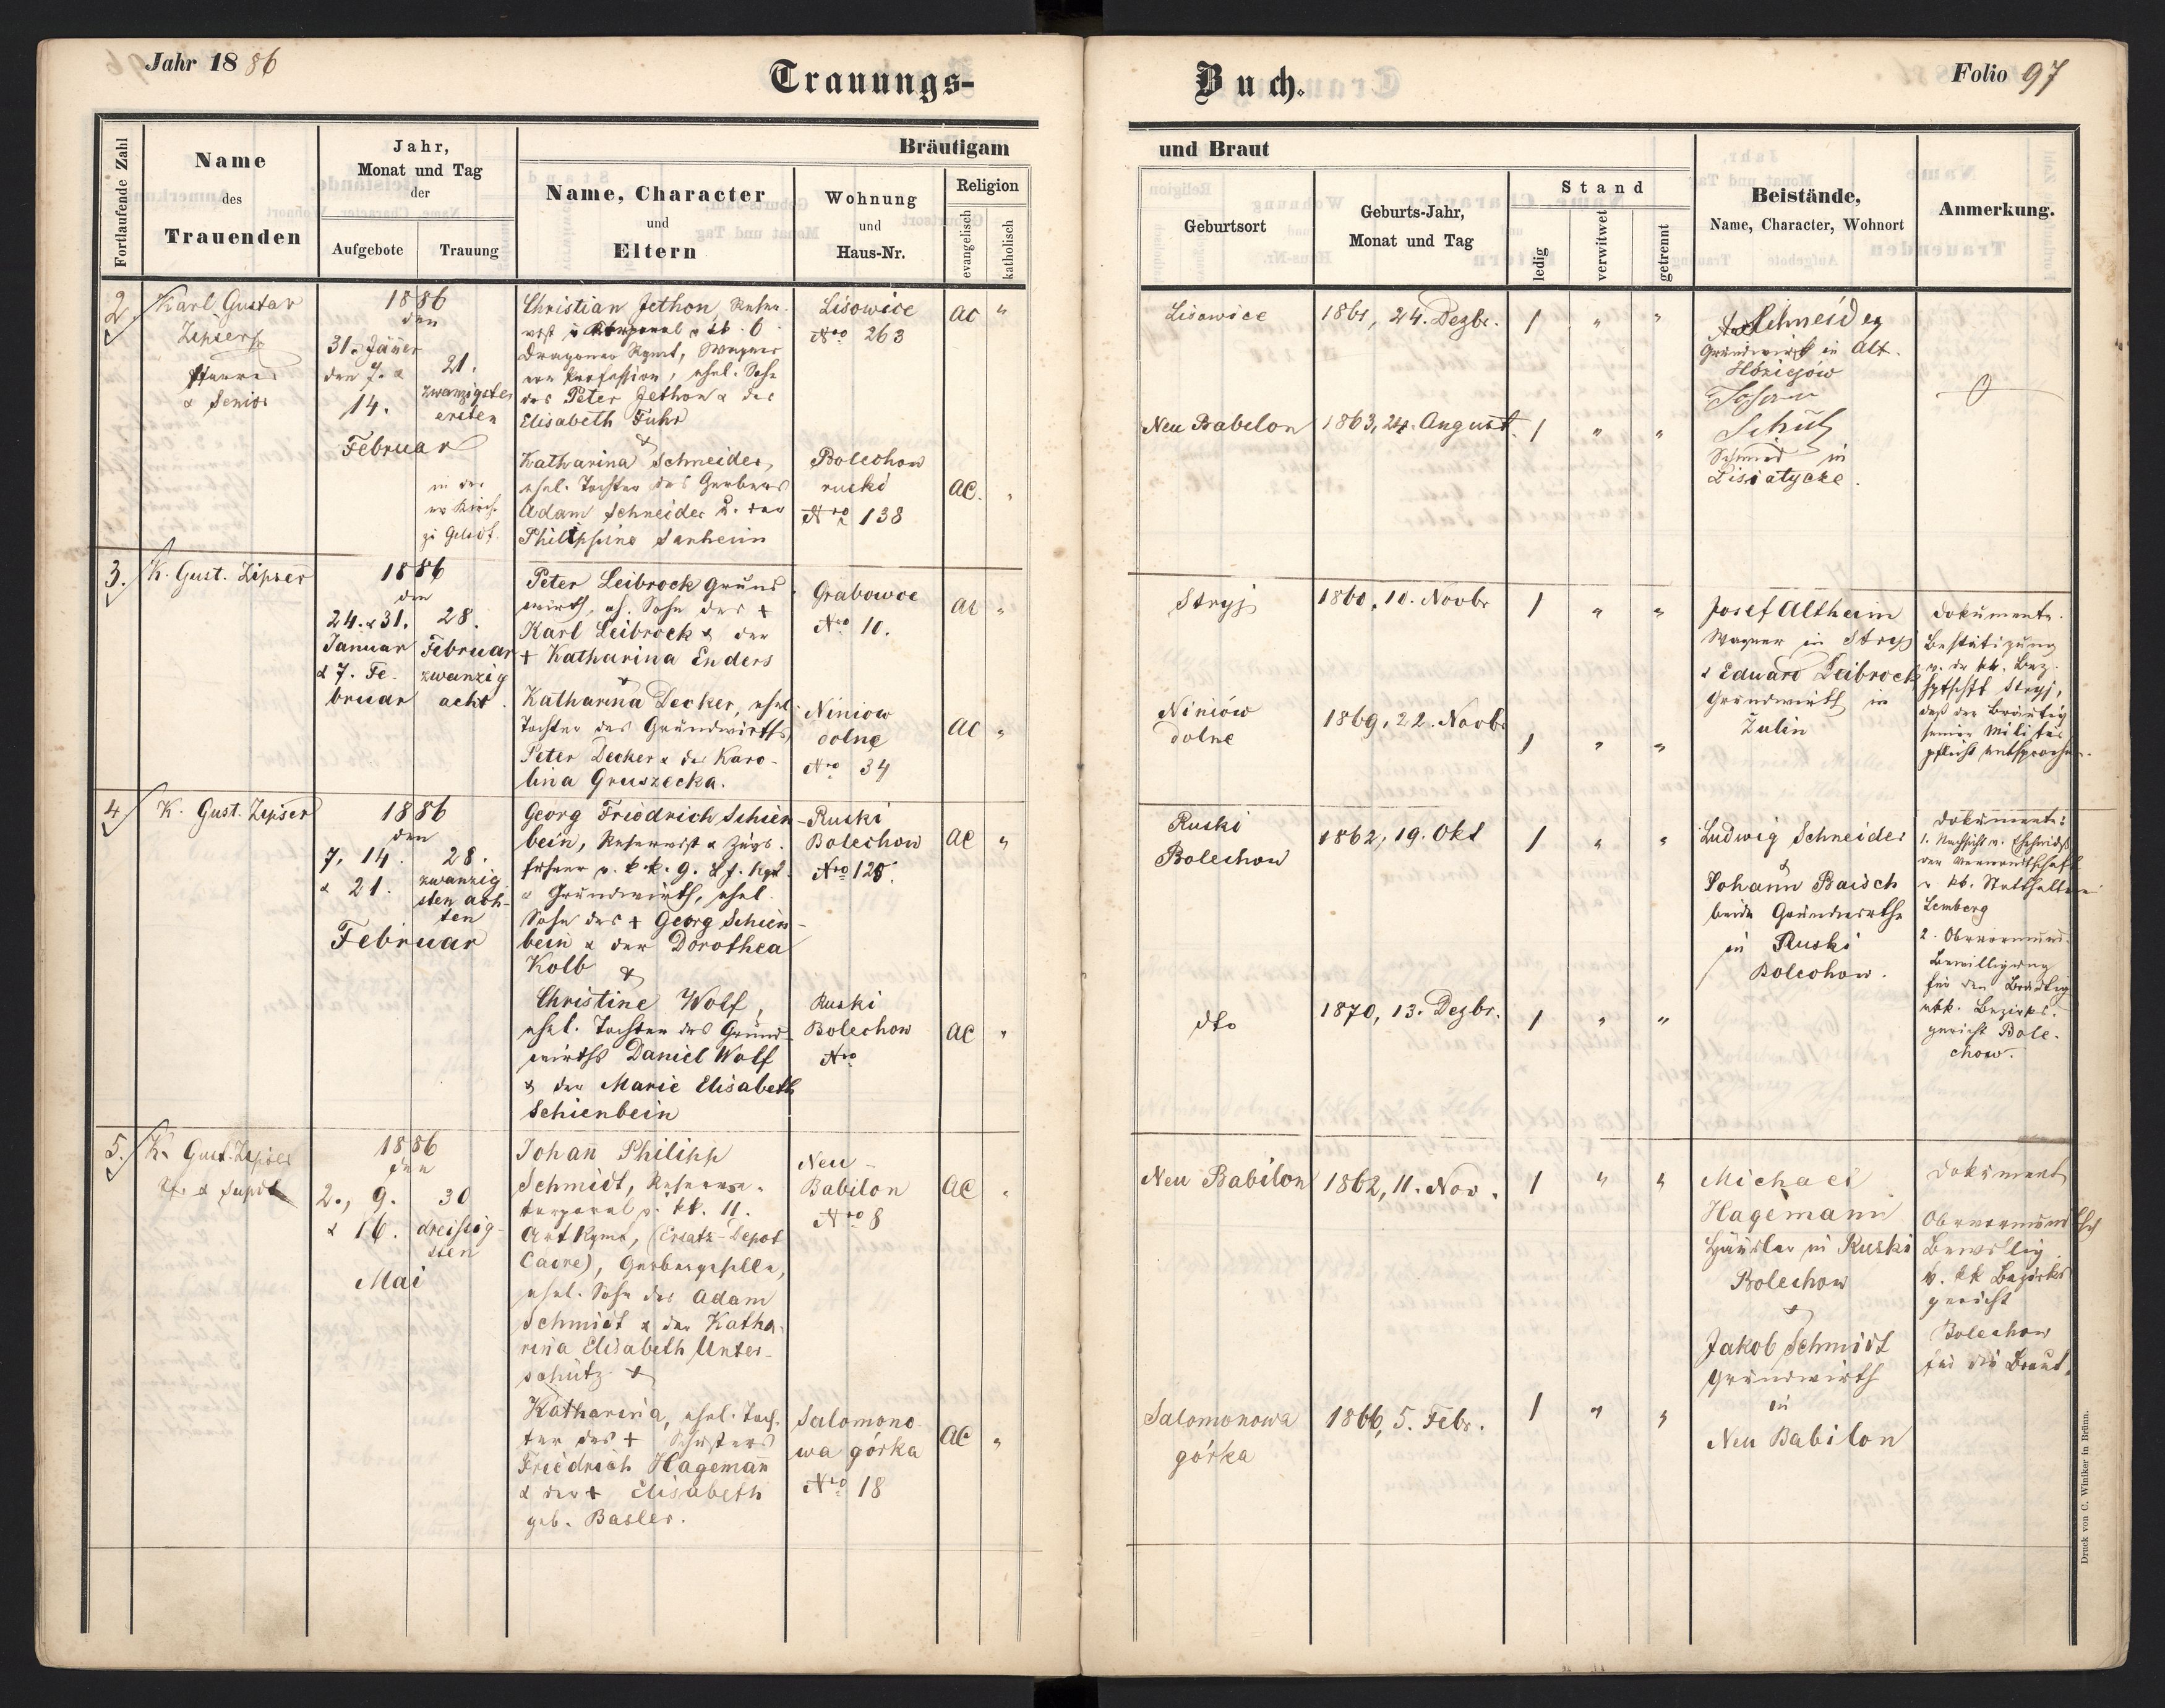 Jahr 1886
Trauungs-
Fortlaufende Zahl
Name
des
Trauenden
Jahr,
Monat und Tag
der
Aufgebote
Trauung
Bräutigam
Name, Character
und
Eltern
Wohnung
und
Haus-Nr.
Religion
evangelisch
katholisch
2.
Karl Gustav
Zipser
Pfarrer
& Senior
1886
den
31. Jäner
den 7. &
14.
Februar
21.
zwanzigsten
ersten
in der
zu
Christian Jethon, Reser-
Dragoner Rgmt, Wagner
von Profession, ehel. Sohn
des Peter Jethon & der
Elisabeth Fuhr
&
Katharina Schneider,
ehel. Tochter des Gerbers
Adam Schneider u. der
Philippine Sanheim
Lisowice
Nro 263
Bolechow
ruski
Nro 138
AC "
AC. "
3.
K. Gust. Zipser
1886
den
24. & 31.
Januar
& 7. Fe-
bruar
28.
Februar
zwanzig
acht.
Peter Leibrock Grund-
wirth, eh. Sohn des +
Karl Leibrock & der
+ Katharina Enders
&
Katharina Decker, ehel.
Tochter des Grundwirths
Peter Decker & der Karo-
lina Gruszecka.
Grabowce
Nro 10.
Niniow
dolne
Nro 34
AC "
AC "
4.
K. Gust. Zipser
1886
den
7, 14.
& 21.
Februar
28.
zwanzig
sten ach-
ten
Georg Friedrich Schien-
bein, Reservist & Zugs-
führer v. k. k. 9. Rgt.
& Grundwirth, ehel.
Sohn des + Georg Schien-
bein & der Dorothea
Kolb &
Christine Wolf,
ehel. Tochter des Grund-
wirths Daniel Wolf
& der Marie Elisabeth
Schienbein
Ruski
Bolechow
Nro 120.
Ruski
Bolechow
Nro
AC "
AC "
5.
K. Gust. Zipser
1886
den
2., 9.
& 16.
Mai
30
dreissig-
sten
Johan̄ Philipp
Schmidt, Reserve-
korporal v. kk. 11.
Art Rgmt, (Ersatz-Depot
Cadre), Gerbergeselle,
ehel. Sohn des Adam
Schmidt & der Katha-
rina Elisabeth Unter-
schütz &
Katharina, ehel. Toch-
ter des + Schusters
Friedrich Hageman̄
& der + Elisabeth
geb. Basler.
Neu-
Babilon
Nro 8
Salomono-
wa górka
Nro 18
AC "
AC "
Buch.
Folio 97
und Braut
Geburtsort
Geburts-Jahr,
Monat und Tag
Stand
ledig
verwitwet
getrennt
Beistände,
Name, Character, Wohnort
Anmerkung.
Lisowice
1861, 24. Dezbr.
1 " "
Neu Babilon
1863, 24. August.
1 " "
Schneider
Grundwirth in Alt.
Johann
Schütz
Schmied in
Lisiatycze.
Stryj
1860, 10. Novbr
1 " "
Niniów
dolne
1869, 22. Novbr
1 " "
Josef Altheim
Wagner in Stryj
& Eduard Leibrock
Grundwirth in
Zulin
Dokumente.
Bestätigung
v. der kk. Bez.
hptschft Stryj,
daß der Bräutig
seiner Militär
pflicht entsprochen.
Ruski
Bolechow
1862, 19. Okt
1 " "
dto
1870, 13. Dezbr.
1 " "
Ludwig Schneider
&
Johan̄ Baisch
beide Grundwirthe
in Ruski
Bolechow.
Dokumente:
der Verwandtschaft
v. kk. Statthalterei
Lemberg
2. Obervormund-
Bewilligung
für den Bräutig
kk. Bezirks-
gericht Bole-
chow.
Neu Babilon
1862, 11. Nov.
1 " "
Salomonowa
górka
1866, 5. Febr.
1 " "
Michael
Hagemann
Häusler in Ruski
Bolechow
&
Jakob Schmidt
Grundwirth
in
Neu Babilon
Dokument
Bewillig.
v. kk Bezirks
gericht
Bolechow
für die Braut.
Druck von C. Winiker in Brünn.